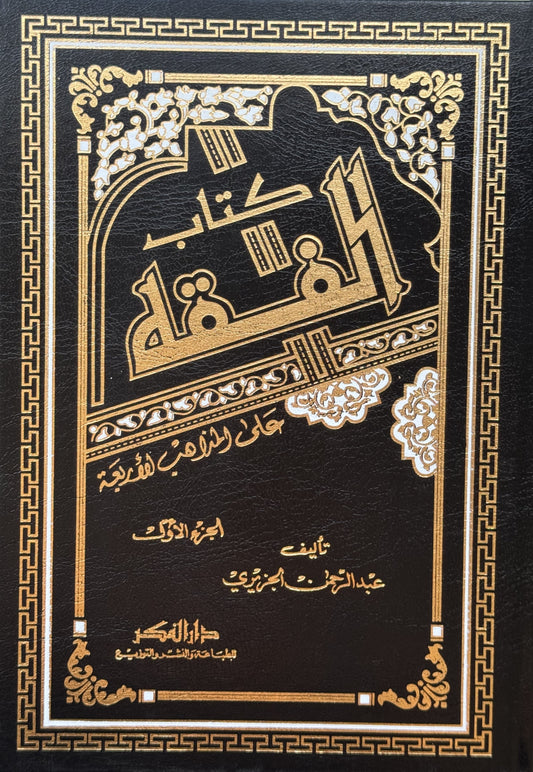 كتاب
الفقه
على المذاهب الأربعة
الجزء الأول
تأليف
عبد الرحمن الجزيري
دار الفكر
للطباعة والنشر والتوزيع